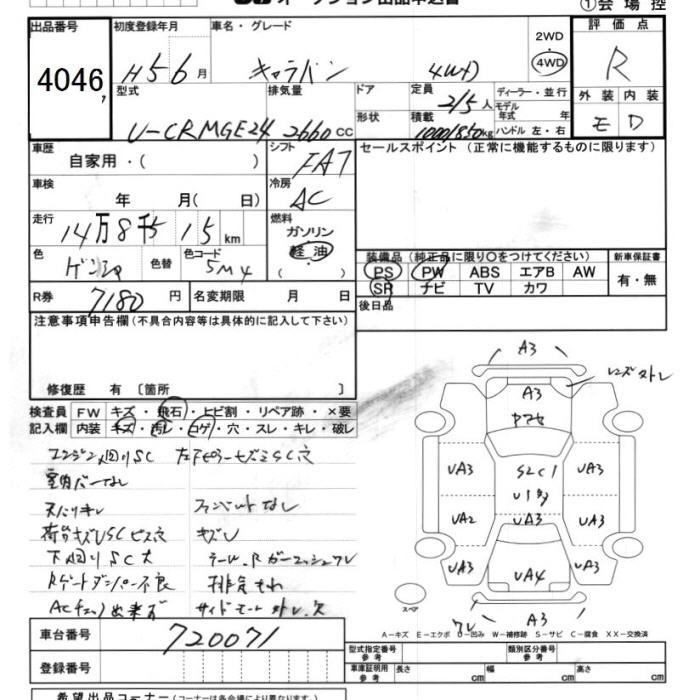 オークション出品申込書
①会場控
出品番号
4046
初度登録年月
H5 6月
車名・グレード
キャラバン 4WD
2WD
4WD
評価点
R
型式
U-CRMGE24
排気量
2660cc
ドア
形状
定員
2/5人
積載
1000/850kg
ディーラー・並行
モデル年式 年
ハンドル 左・右
外装 内装
E D
車歴
自家用・( )
シフト
FA7
セールスポイント (正常に機能するものに限ります)
車検
年 月( 日)
冷房
AC
走行
14万8千515km
燃料
ガソリン
軽油
( )
色
色替
色コード
5M4
装備品 (純正品に限り○をつけてください)
新車保証書
PS PW ABS エアB AW
SR ナビ TV カワ
有・無
R券
7180円
名変期限 月 日
後日品
注意事項申告欄 (不具合内容等は具体的に記入して下さい)
修復歴 有 〔箇所 〕
検査員記入欄
FW キズ・飛石・ヒビ割・リペア跡・×要
内装 キズ・汚レ・コゲ・穴・スレ・キレ・破レ
エンジン下回りSC
室内バーなし
天バリキレ
荷台キズUSCビス穴
キズU
下回りSC大
Rゲートダンパー不良
排気もれ
ACチェック出来ず
サイドモール外レ欠
A3
レンズ外レ
A3
ヤマセ
UA3
S2C1
UA3
UA2
UA3
UA3
UA3
UA4
UA3
スペア
ワレ
A3
A-キズ E-エクボ U-凹み W-補修跡 S-サビ C-腐食 XX-交換済
車台番号
720071
登録番号
型式指定番号
参考
類別区分番号
参考
車庫証明用
参考
長さ cm 幅 cm 高さ cm
希望出品コーナー (コーナーは各会場により異なります。)